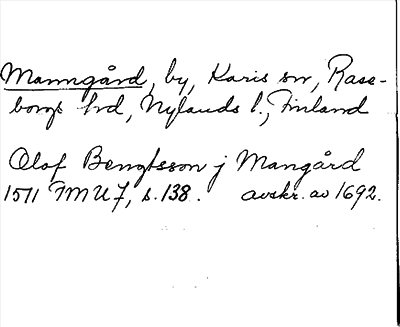 Manngård, by, Karis sn, Rase-
borgs hrd, Nylands l., Finland
Olof Bengtsson j Mangård
1571 FMU 7, s. 138. avskr. av 1692.